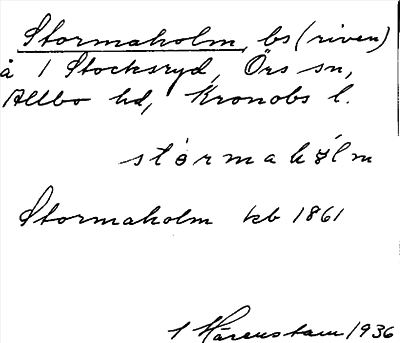 Stormaholm, bs (riven)
å 1 Stocksryd, Örs sn,
Allbo hd, Kronobs l.
stórmahòlm
Stormaholm kb 1861
1936